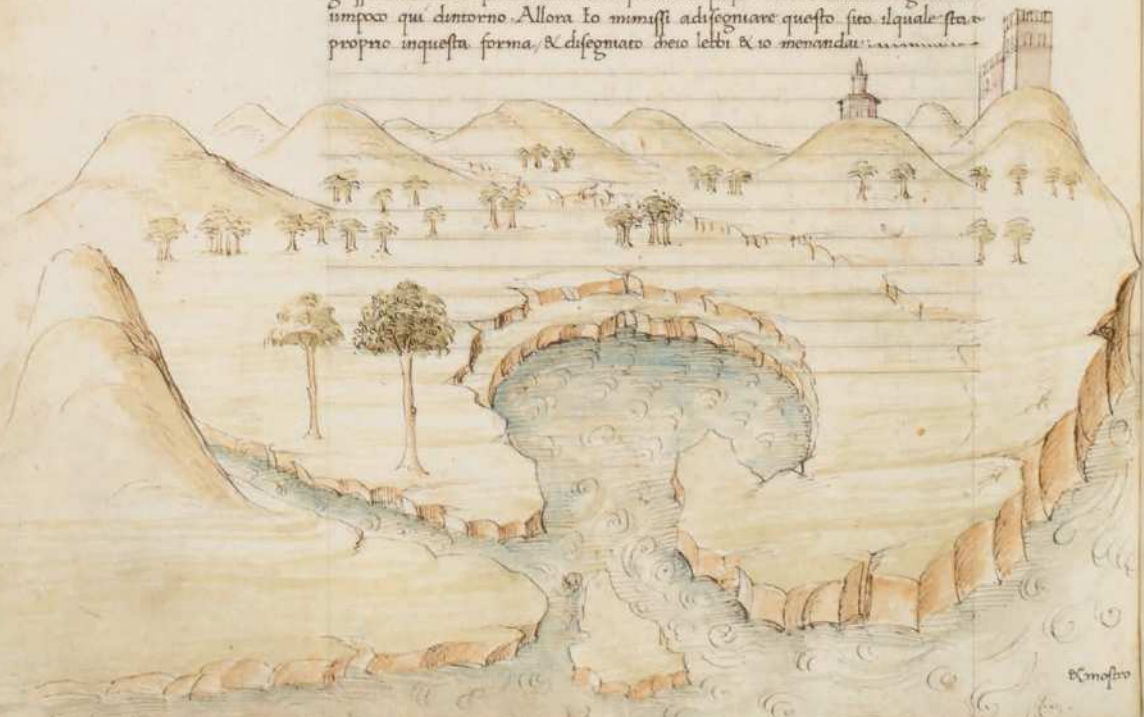 unpoco qui dintorno. Allora Io mimissi adisegniare questo sito ilquale sta
proprio inquesta forma, & disegniato cheio lebbi & io menandai
& mostro